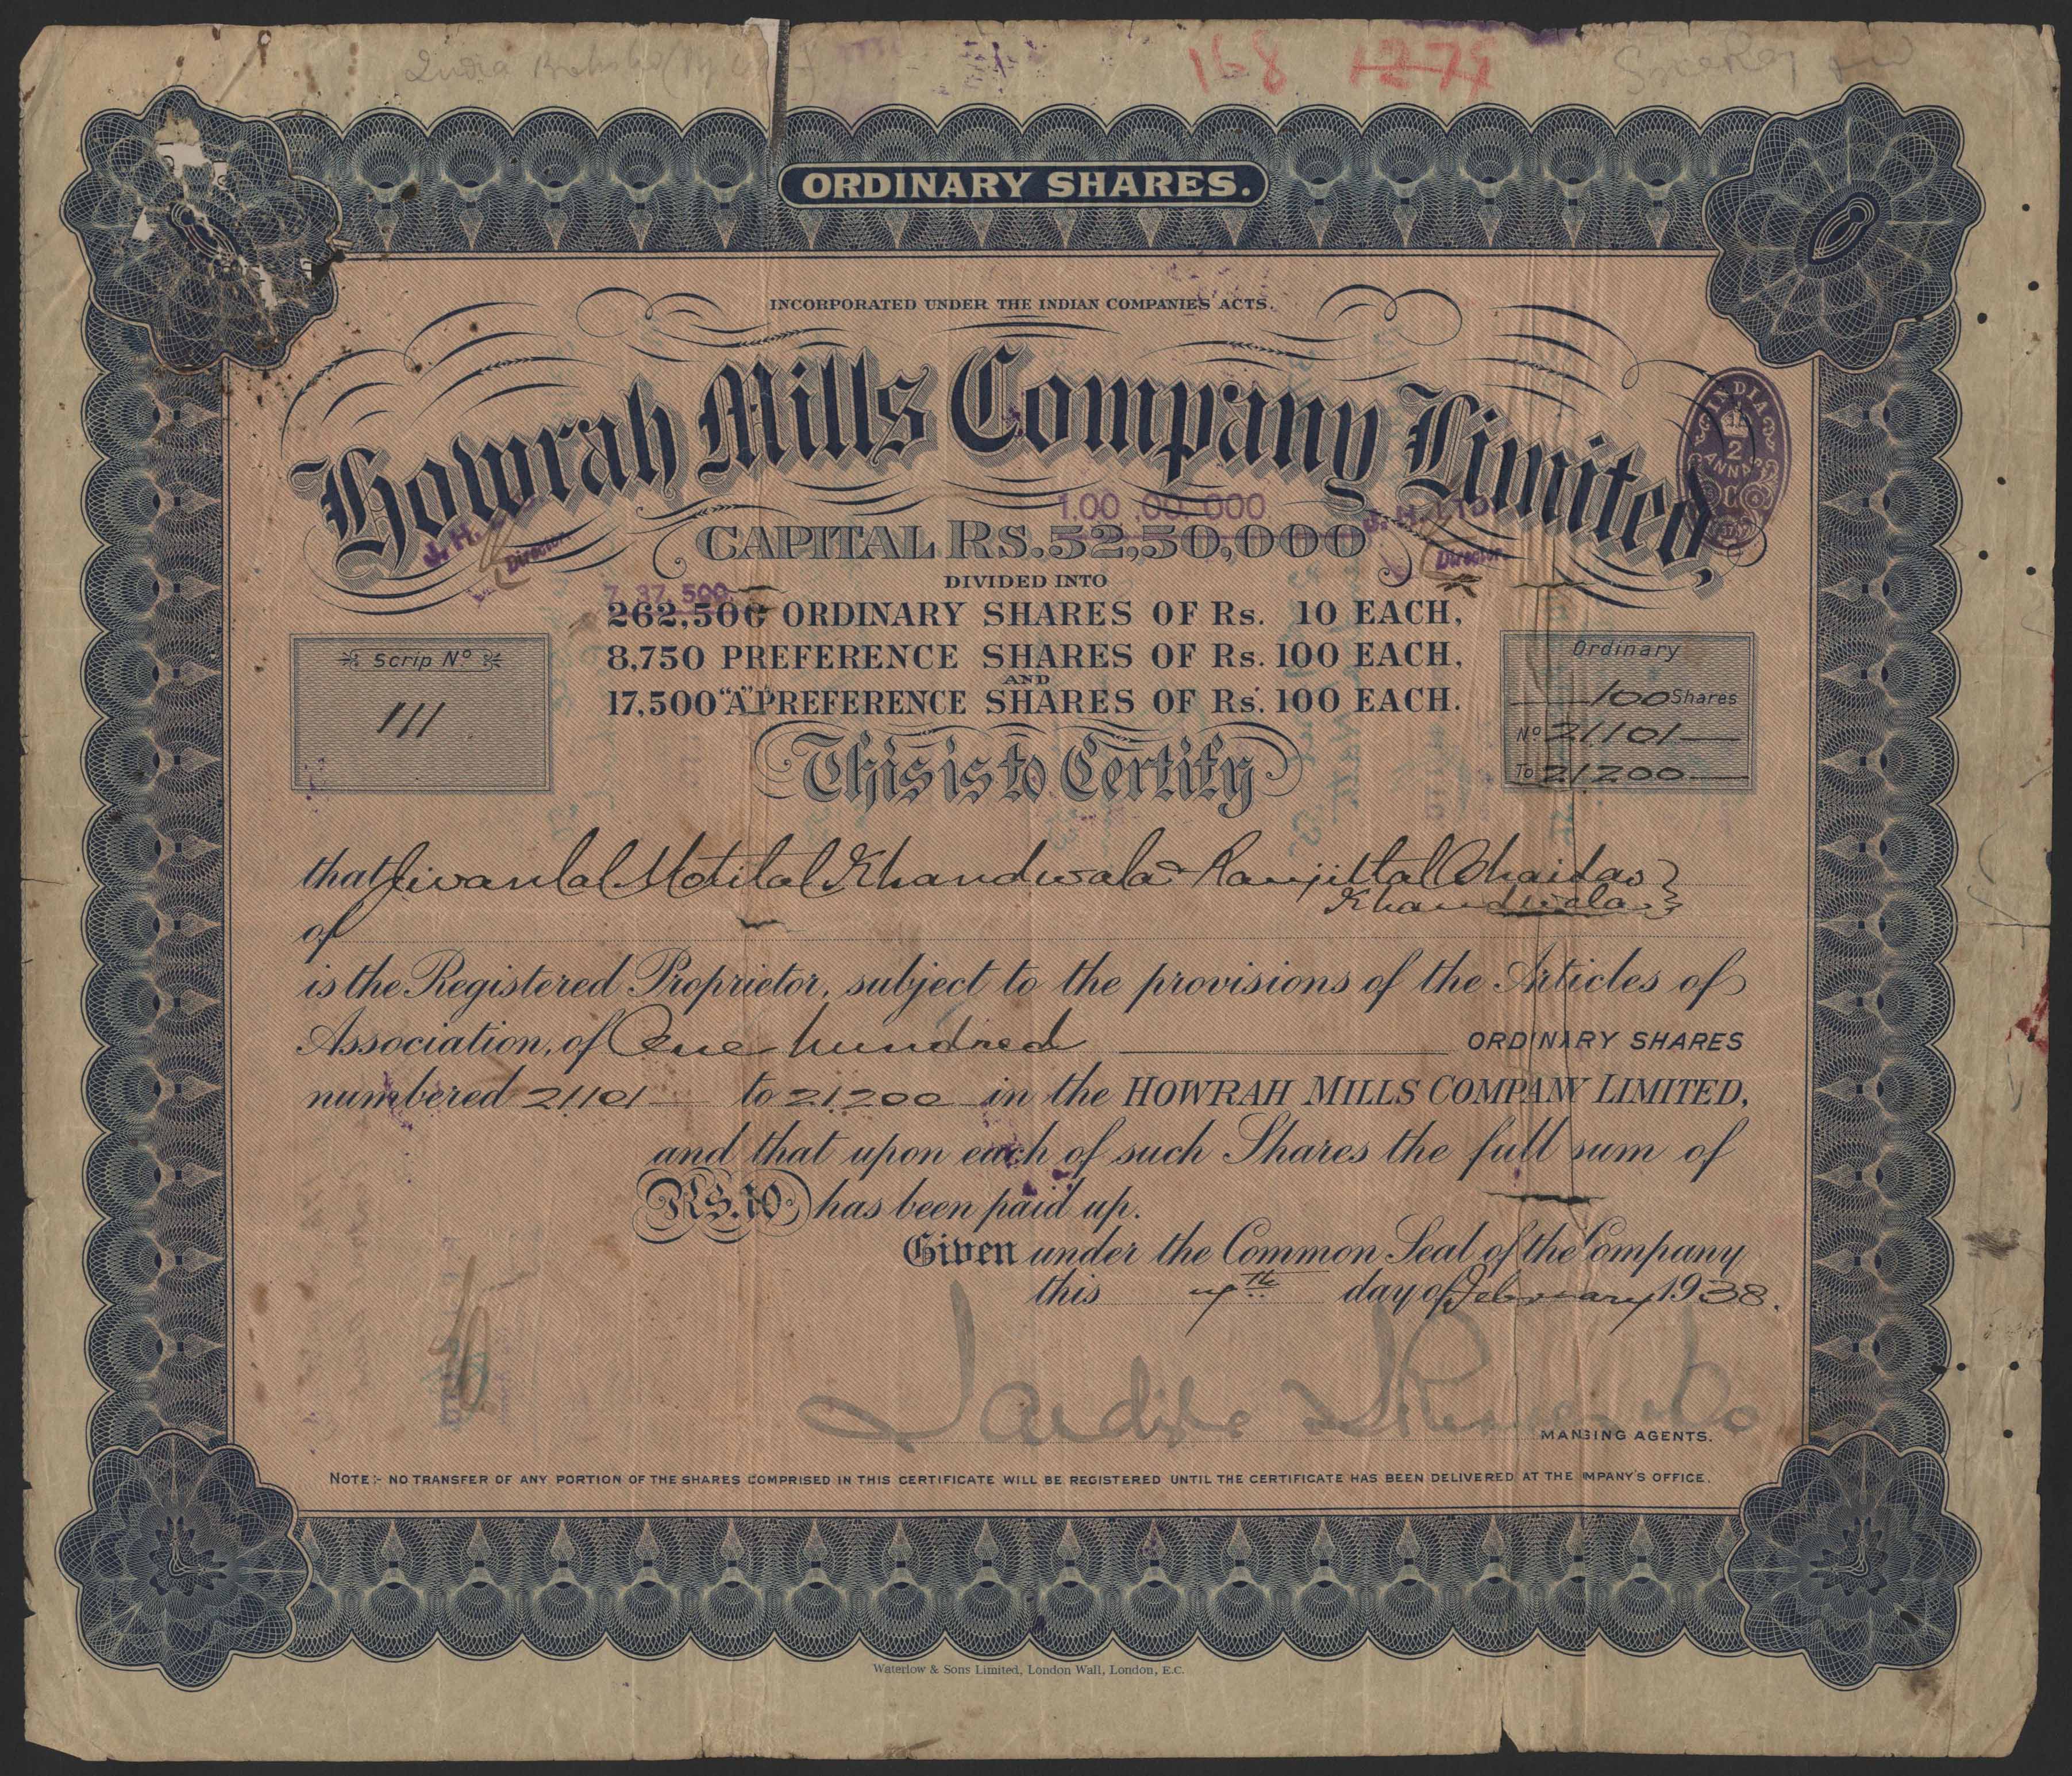 168 1279
ORDINARY SHARES.
INCORPORATED UNDER THE INDIAN COMPANIES ACTS.
Howrah Mills Company Limited,
INDIA
2
ANNAS
1,00,00,000
CAPITAL RS. 52,50,000
J. H. LTD.
Director
Director
DIVIDED INTO
7,37,500
262,500 ORDINARY SHARES OF Rs. 10 EACH,
8,750 PREFERENCE SHARES OF Rs. 100 EACH,
AND
17,500 "A" PREFERENCE SHARES OF Rs. 100 EACH.
Scrip No
111
Ordinary
100 Shares
No 21101
To 21200
This is to Certify
that Jivanlal Motilal Khandwala & Ranjittal Bhaidas
Khandwala
of
is the Registered Proprietor, subject to the provisions of the Articles of
Association, of One hundred ORDINARY SHARES
numbered 21101 to 21200 in the HOWRAH MILLS COMPANY LIMITED,
and that upon each of such Shares the full sum of
RS. 10 has been paid up.
Given under the Common Seal of the Company
this day of February 1938.
MANGING AGENTS.
NOTE:- NO TRANSFER OF ANY PORTION OF THE SHARES COMPRISED IN THIS CERTIFICATE WILL BE REGISTERED UNTIL THE CERTIFICATE HAS BEEN DELIVERED AT THE MPANY'S OFFICE.
Waterlow & Sons Limited, London Wall, London, E.C.